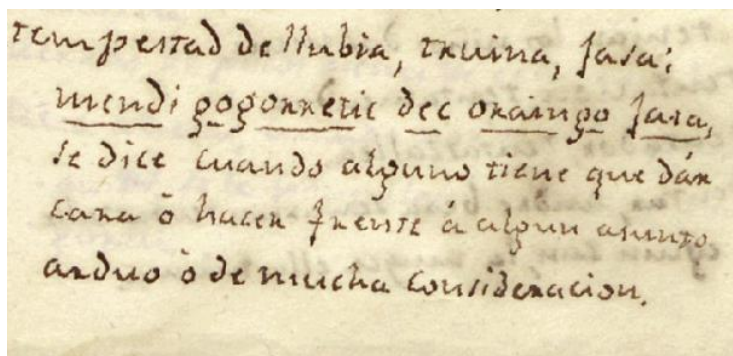 tempestad de llubia, truina, jasa;
mendi gogorretic dec oraingo jasa,
se dice cuando alguno tiene que dár
cara ó hacer frente á algun asunto
arduo ò de mucha consideracion.